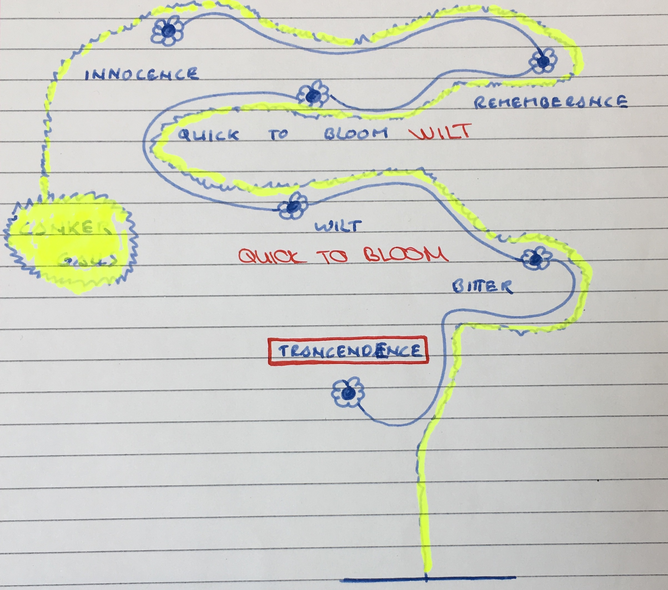 INNOCENCE
REMEMBERANCE
QUICK TO BLOOM WILT
CANKER
WILT
QUICK TO BLOOM
BITTER
TRANCENDENCE